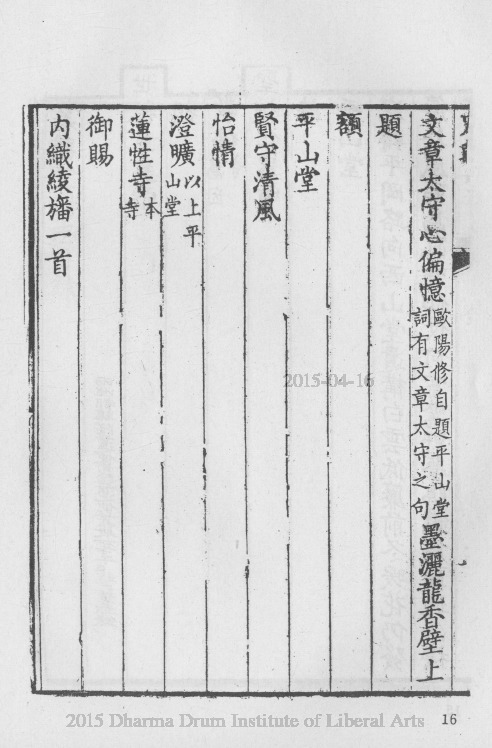 文章太守心偏憶歐陽修自題平山堂詞有文章太守之句墨灑龍香壁上
題
額
平山堂
賢守清風
怡情
澄曠以上平山堂
蓮性寺本寺
御賜
內織綾旛一首
2015-04-16
2015 Dharma Drum Institute of Liberal Arts
16